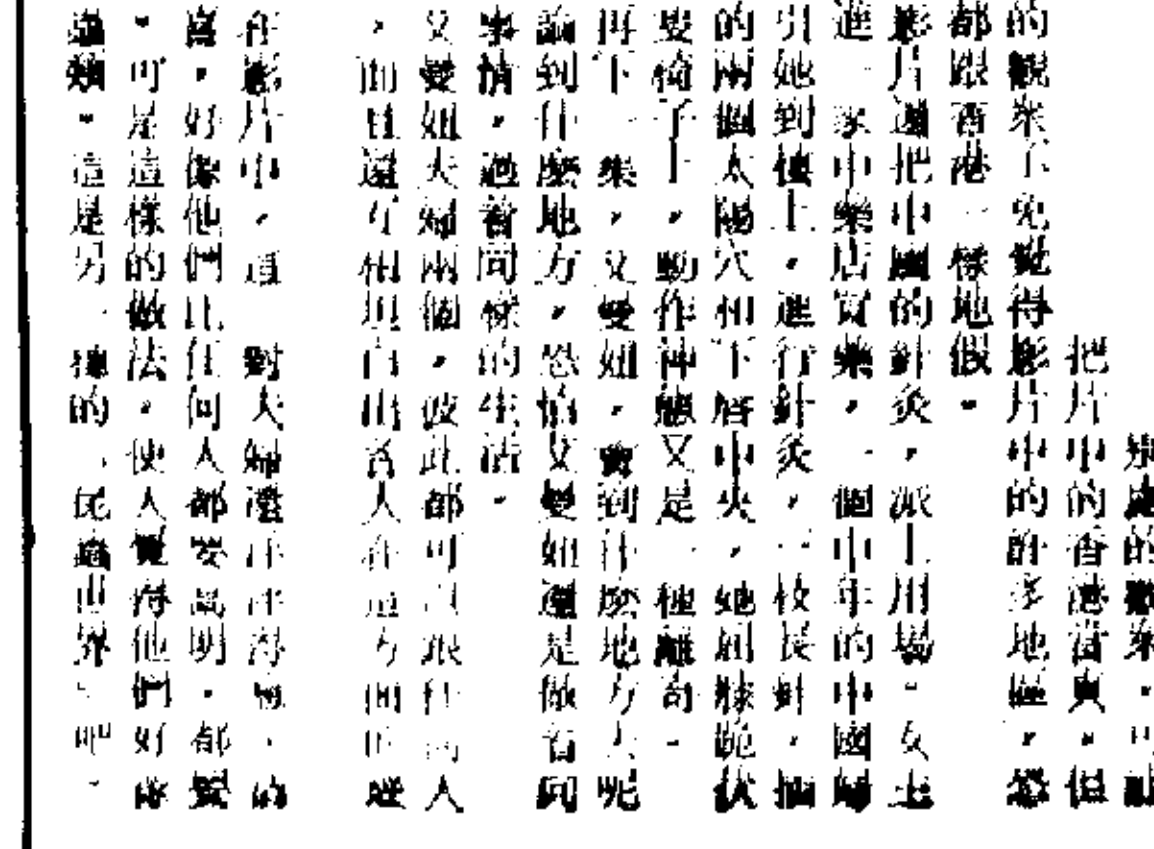 的觀衆,可
把片中的香港當真,但
的觀衆不免覺得影片中的許多地區,恐
都跟香港一樣地假。
影片還把中國的針灸,派上用場。女主
進一家中藥店買藥,一個中年的中國婦
引她到樓上,進行針灸,一枝長針,插
的兩個太陽穴和下唇中央,她屈膝跪伏
椅子上,動作神態又是一種離奇。
再下一集,艾曼妞,會到什麼地方去呢
論到什麼地方,恐怕艾曼妞還是做着同
事情,過着同樣的生活。
艾曼妞夫婦兩個,彼此都可以跟任何人
,而且還互相自由各人在這方面的
在影片中,這一對夫婦還洋洋得意,的
喜,好像他們比任何人都要高明,都覺
。可是這樣的做法,使人覺得他們好像
蟲類。這是另一種的「昆蟲世界」吧。